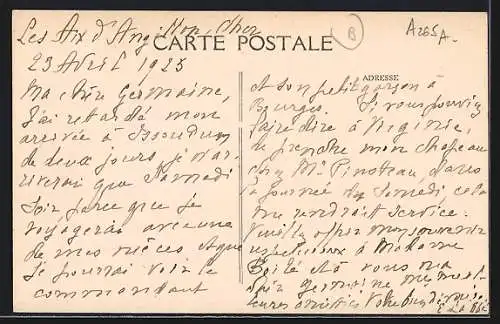 Les Aix d'Angillon, Cher
CARTE POSTALE
A265A.
B
ADRESSE
23 Avril 1925
Ma chère Germaine,
J'ai retardé mon
arrivée à Issoudun
de deux jours, je n'ar-
riverai que Samedi
Soir parce que je
voyagerai avec une
de mes nièces et que
je pourrai voir le
commandant
et son petit garçon à
Bourges. Si vous pouviez
faire dire à Virginie,
de prendre mon chapeau
chez Mme Pinoteau, dans
la journée de Samedi, cela
me rendrait service.
Veuillez offrir mon souvenir
respectueux à Madame
et à vous ma
chère Germaine mes meil-
leures amitiés Votre